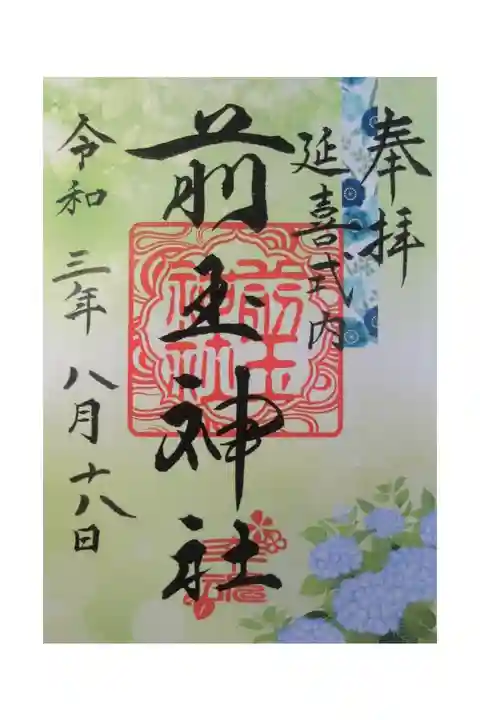 奉拝
延喜式内
前玉神社
前玉
神社
令和三年八月十八日